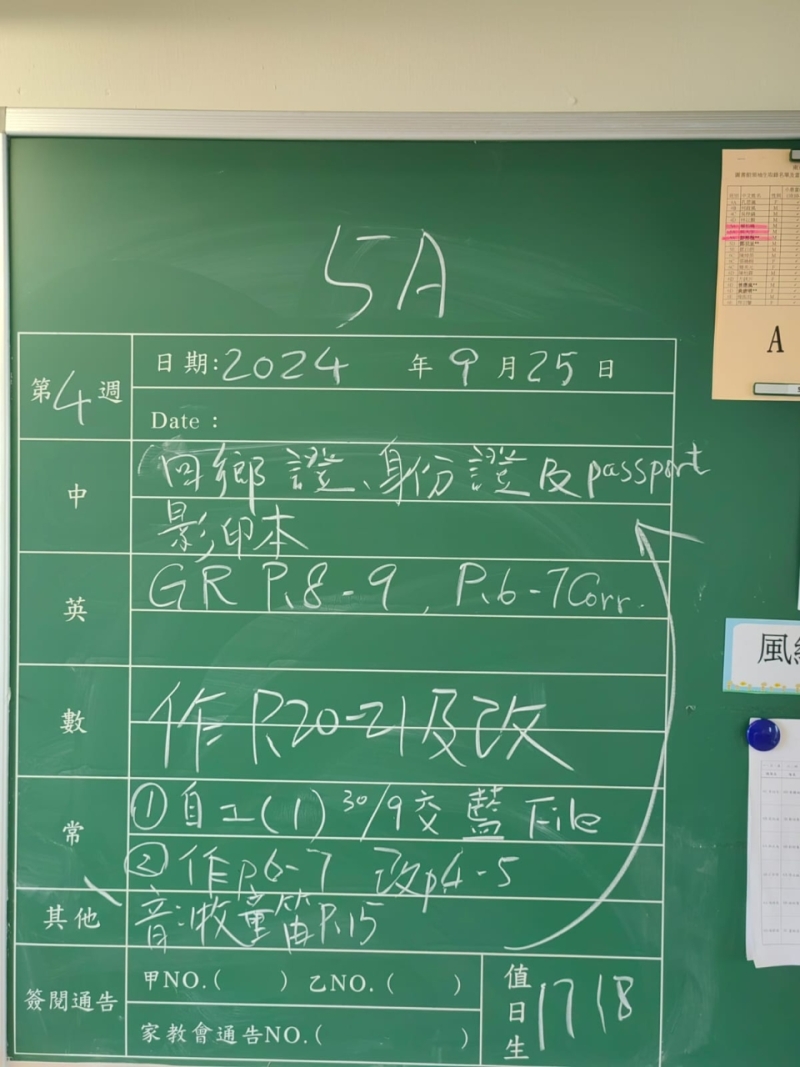 5A
第4週
日期:2024 年9月25日
Date :
中
回鄉證、身份證及passport
影印本
英
GR P.8-9, P.6-7Corr.
數
作P.20-21及改
常
①自工(1) 30/9交藍File
②作p6-7 改p4-5
其他
音:牧童笛P.15
簽閱通告
甲NO.( ) 乙NO.( )
家教會通告NO.( )
值日生 17 18
A